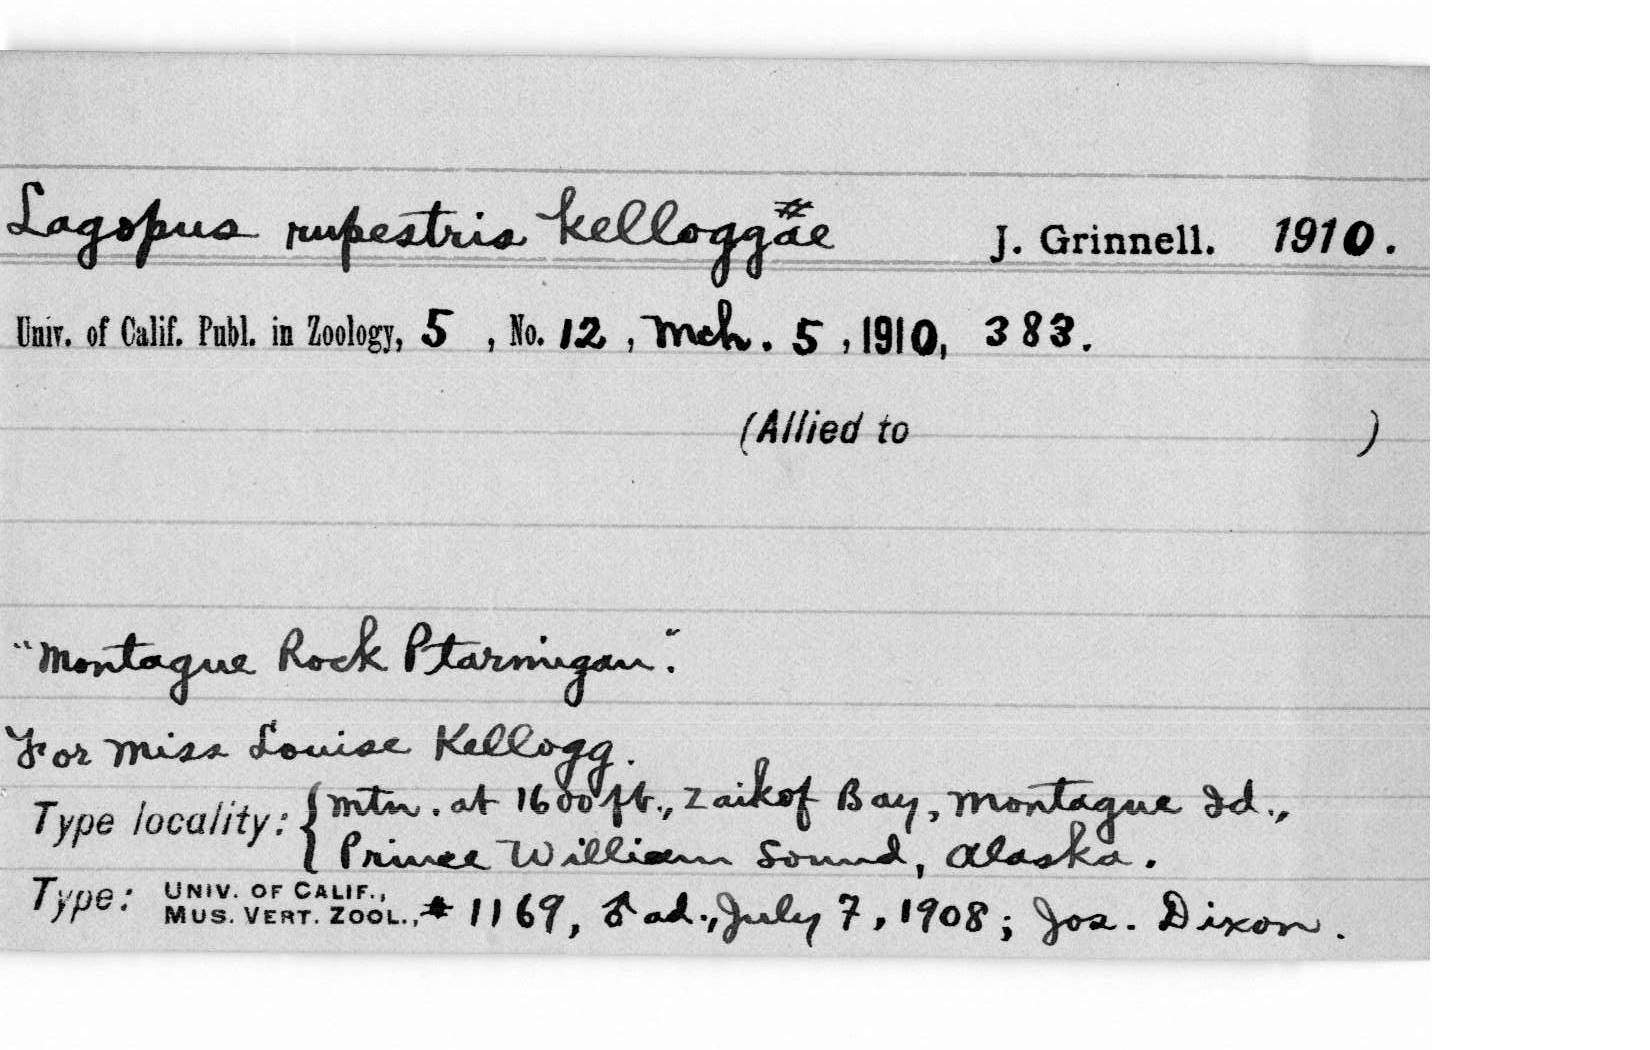 Lagopus rupestris kelloggae J. Grinnell. 1910.
Univ. of Calif. Publ. in Zoology, 5, No. 12, Mch. 5, 1910, 383.
(Allied to )
"Montague Rock Ptarmigan".
For Miss Louise Kellogg.
Type locality: { Mtn. at 1600 ft., Zaikof Bay, Montague Id.,
Prince William Sound, Alaska.
Type: UNIV. OF CALIF., MUS. VERT. ZOOL., # 1169, ♂ ad., July 7, 1908; Jos. Dixon.